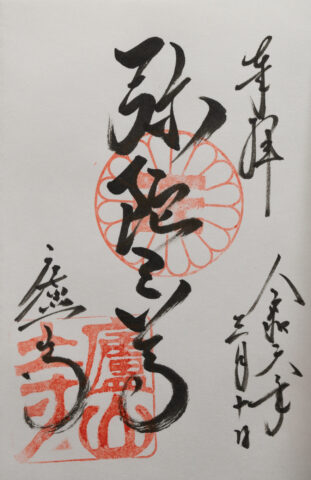 奉拝
令和六年
三月十日
弥陀三尊
廬山寺
廬山
寺